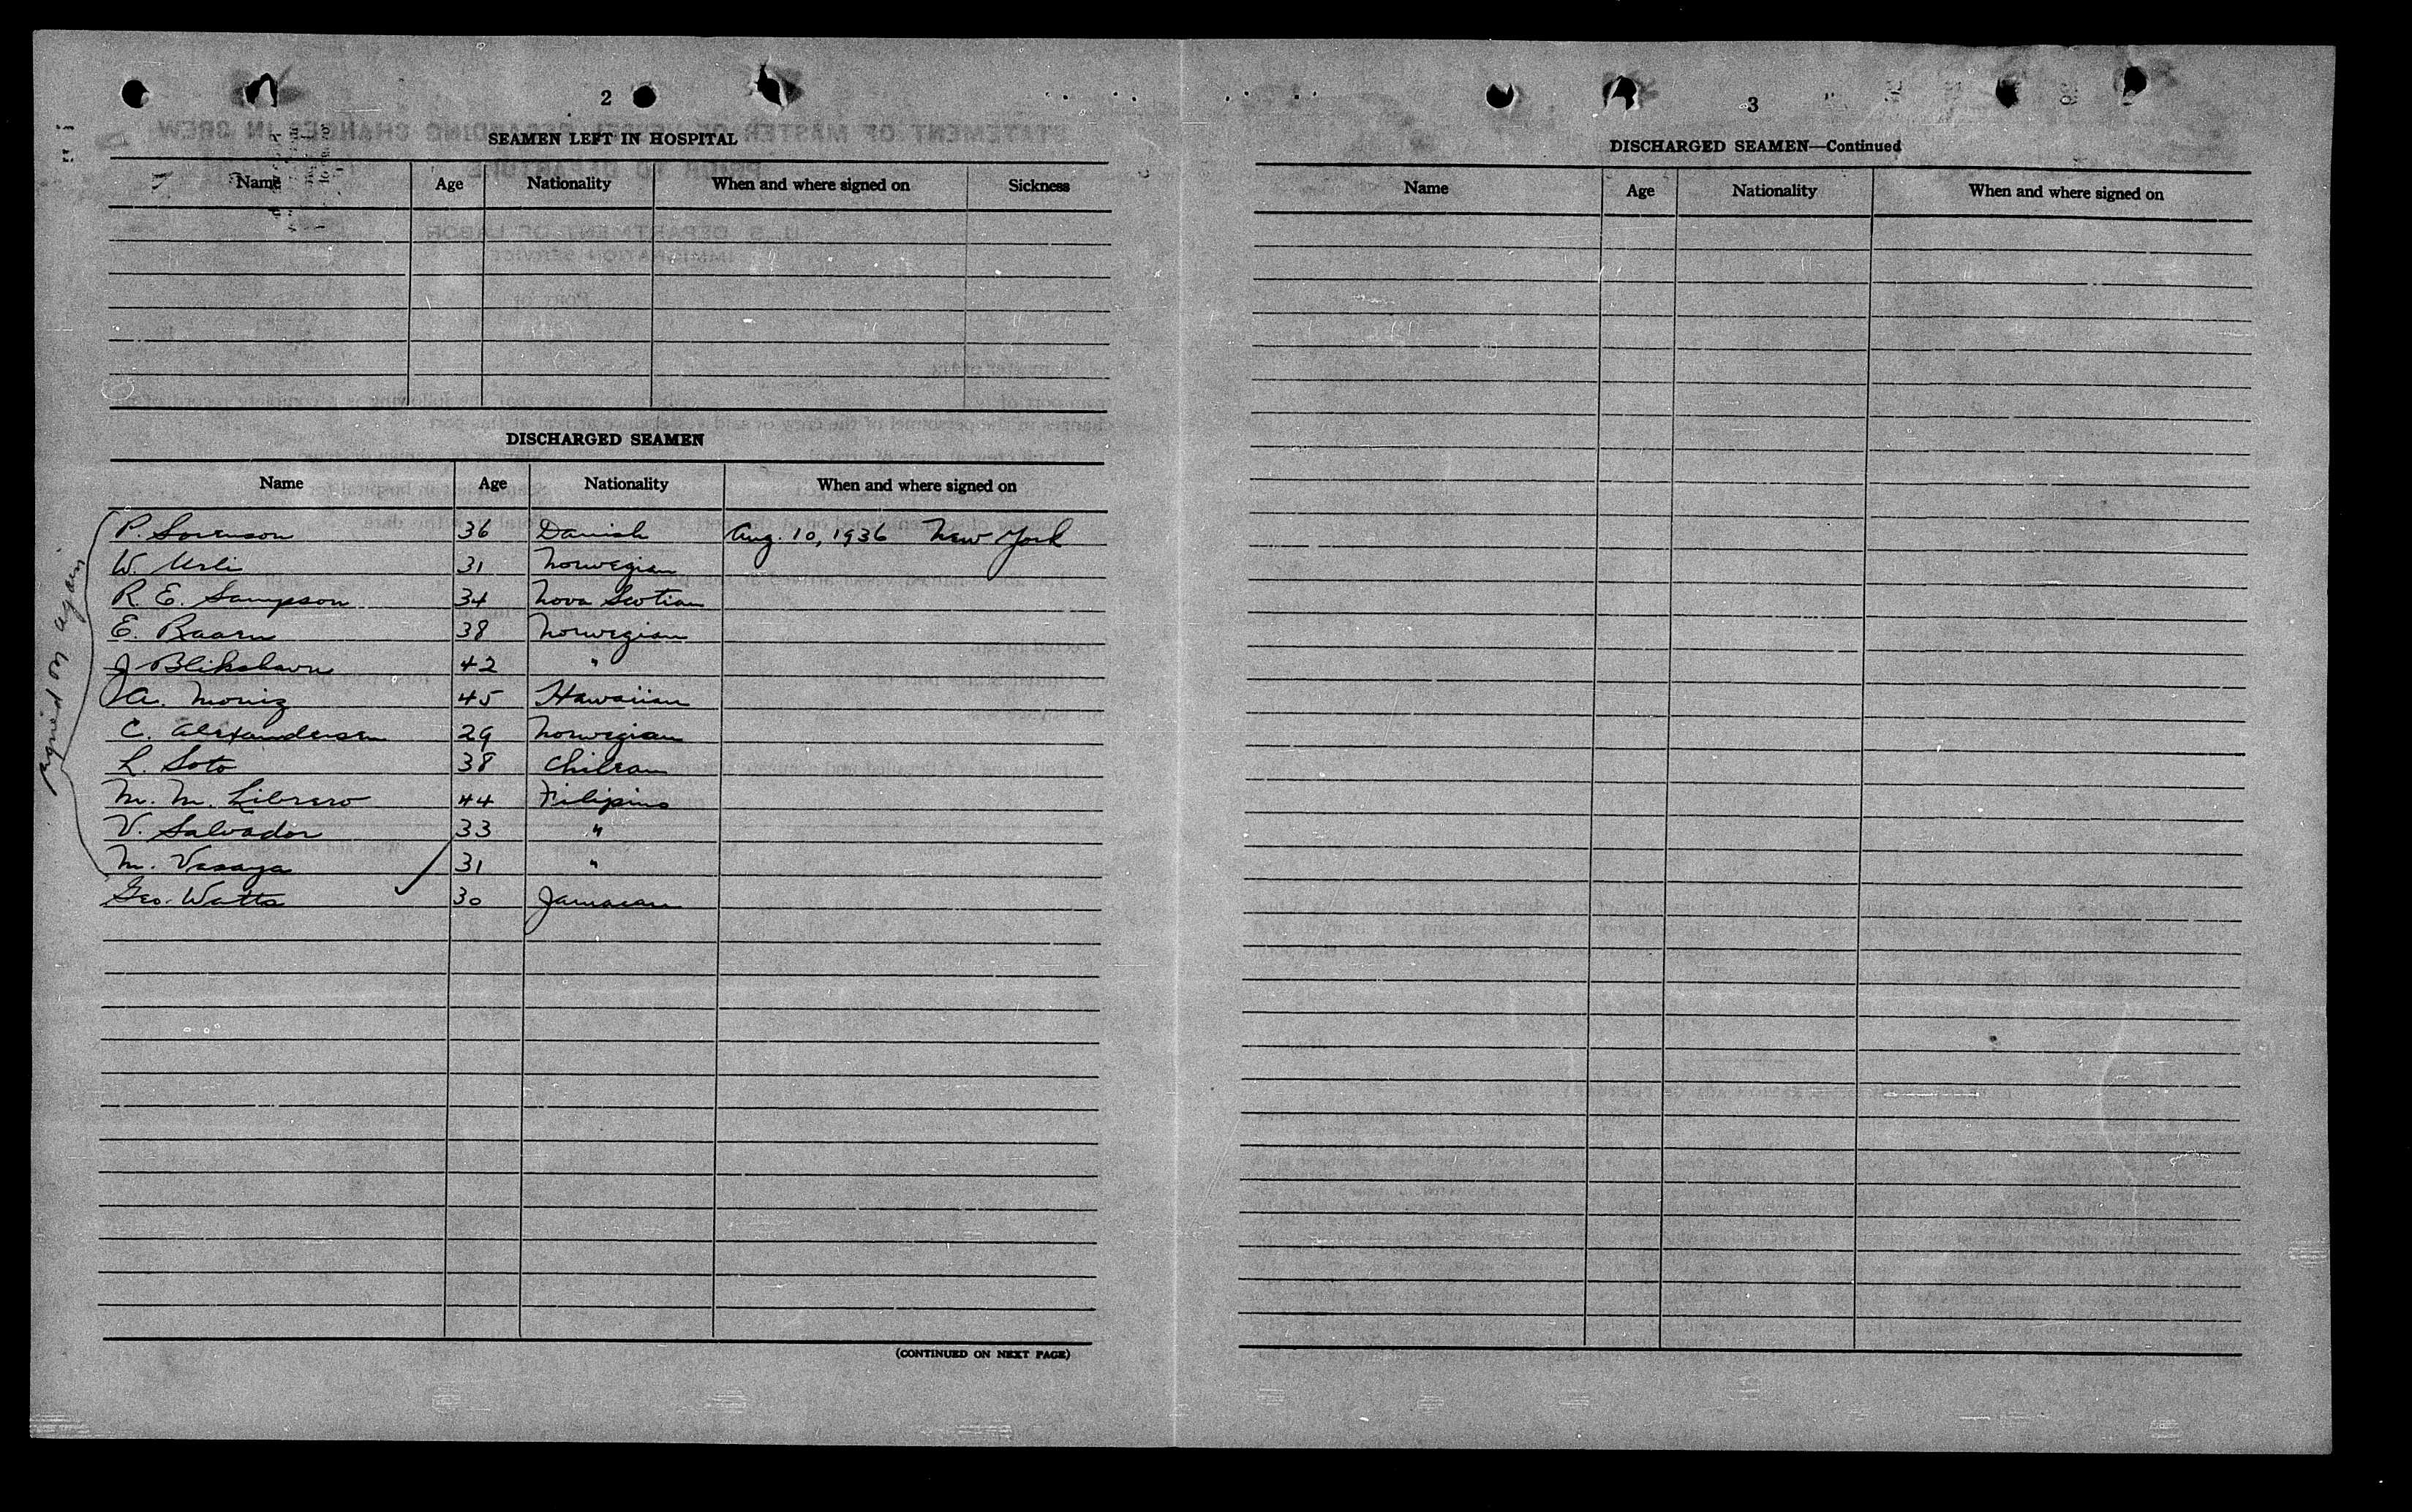 2
SEAMEN LEFT IN HOSPITAL
Name Age Nationality When and where signed on Sickness
DISCHARGED SEAMEN
Name Age Nationality When and where signed on
P. Sorenson 36 Danish Aug. 10, 1936 New York
W. Urli 31 Norwegian
R. E. Sampson 34 Nova Scotian
E. Baarn 38 Norwegian
J Blikshavn 42 "
A. Moniz 45 Hawaiian
C. Alexandersen 29 Norwegian
L. Soto 38 Chilean
M. M. Librero 44 Filipino
V. Salvador 33 "
M. Vasaya 31 "
Geo. Watts 30 Jamaican
signed on again
(CONTINUED ON NEXT PAGE)
3
DISCHARGED SEAMEN—Continued
Name Age Nationality When and where signed on